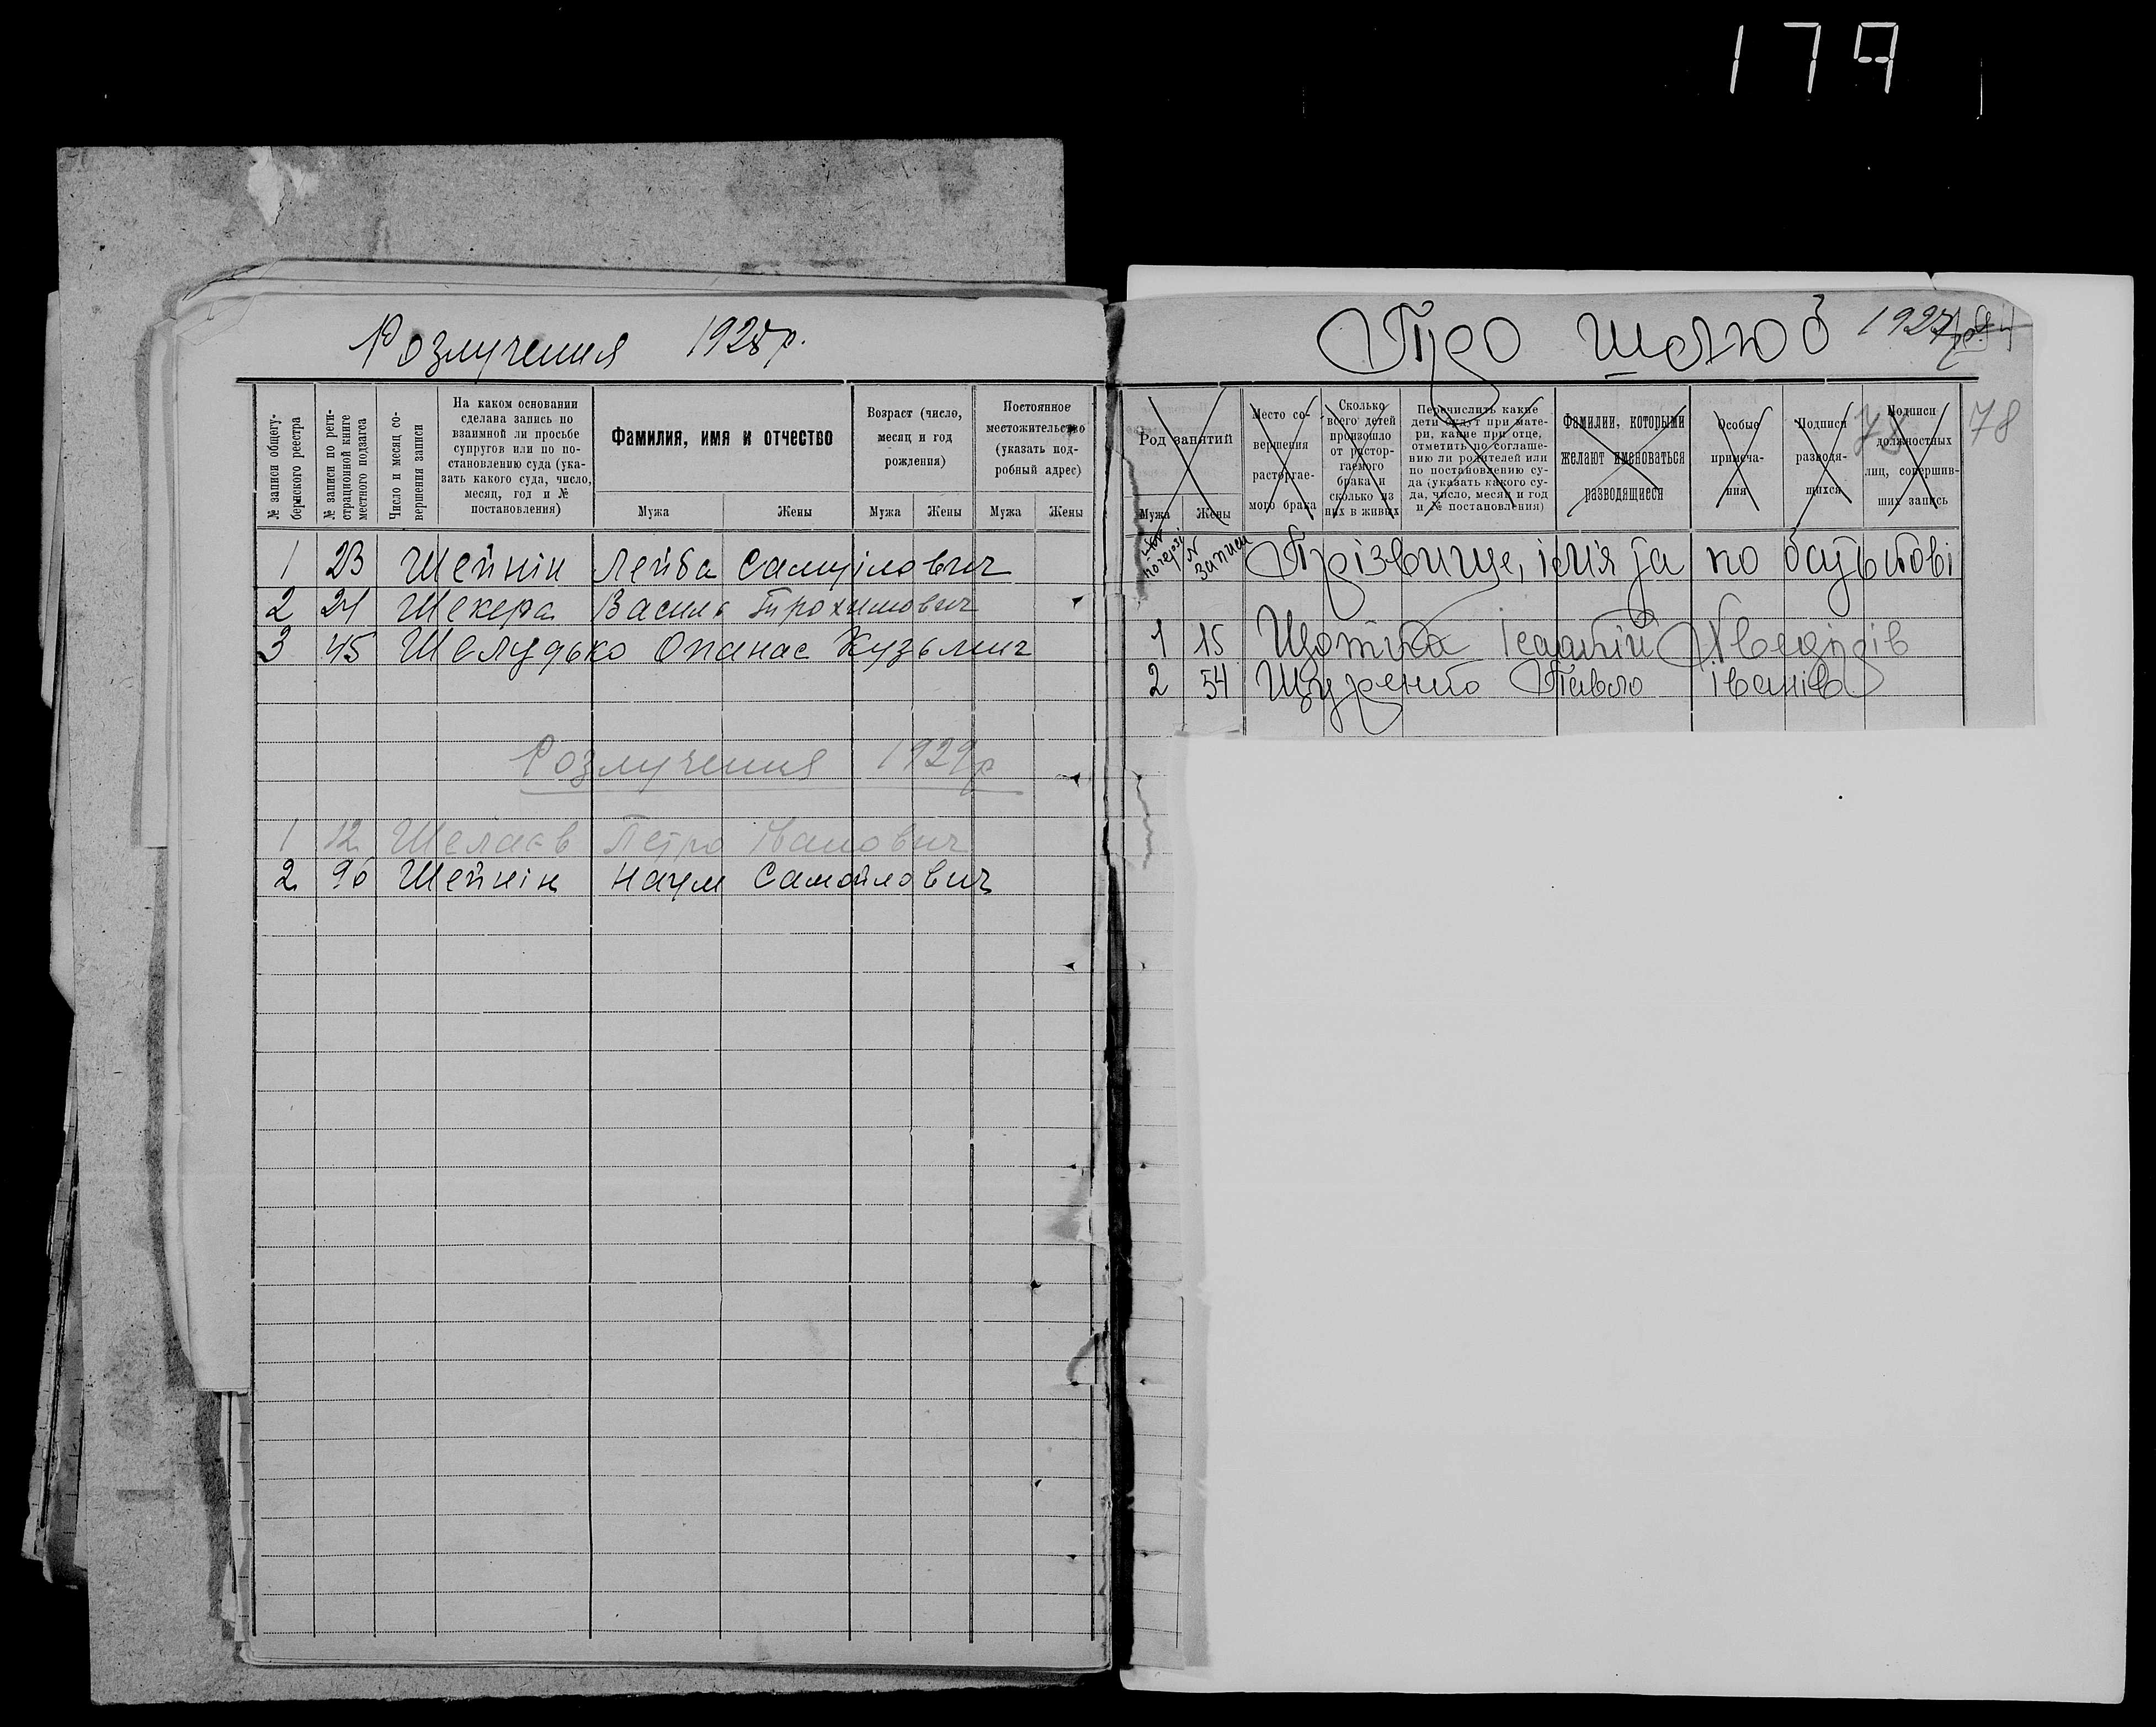 179
Розлучення 1928 р.
№ записи общегубернского реестра
№ записи по регистрационной книге местного подзагса
Число и месяц совершения записи
На каком основании
сделана запись по
взаимной ли просьбе
супругов или по по-
становлению суда (ука-
зать какого суда, число,
месяц, год и №
постановления)
Фамилия, имя и отчество
Мужа Жены
Возраст (число,
месяц и год
рождения)
Мужа Жены
Постоянное
местожительство
(указать под-
робный адрес)
Мужа Жены
1 23 Шейнін Лейба Самуілович
2 24 Шекера Василь Трохимович
3 45 Шелудько Опанас Кузьмич
Розлучення 1929 р
1 12 Шелаєв Петро Іванович
2 96 Шейнін Наум Самойлович
Про шлюб 1927
78
Род занятий
Мужа Жены
Место со-
вершения
расторгае-
мого брака
Сколько
всего детей
произошло
от растор-
гаемого
брака и
сколько из
них в живых
Перечислить какие
дети будут при мате-
ри, какие при отце,
отметить по соглаше-
нию ли родителей или
по постановлению су-
да (указать какого су-
да, число, месяц и год
и № постановления)
Фамилии, которыми
желают именоваться
разводящиеся
Особые
примеча-
ния
Подписи
разводя-
щихся
Подписи
должностных
лиц, совершив-
ших запись
N записи
Прізвище, ім'я та по батькові
1 15 Щотка
2 54 Щуренко Павло Іванів